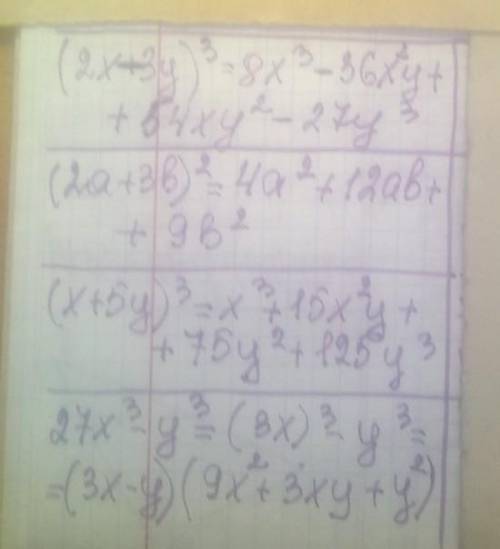 (2x-3y)³=8x³-36x²y+
+54xy²-27y³
(2a+3b)²=4a²+12ab+
+9b²
(x+5y)³=x³+15x²y+
+75y²+125y³
27x³-y³=(3x)³-y³=
=(3x-y)(9x²+3xy+y²)